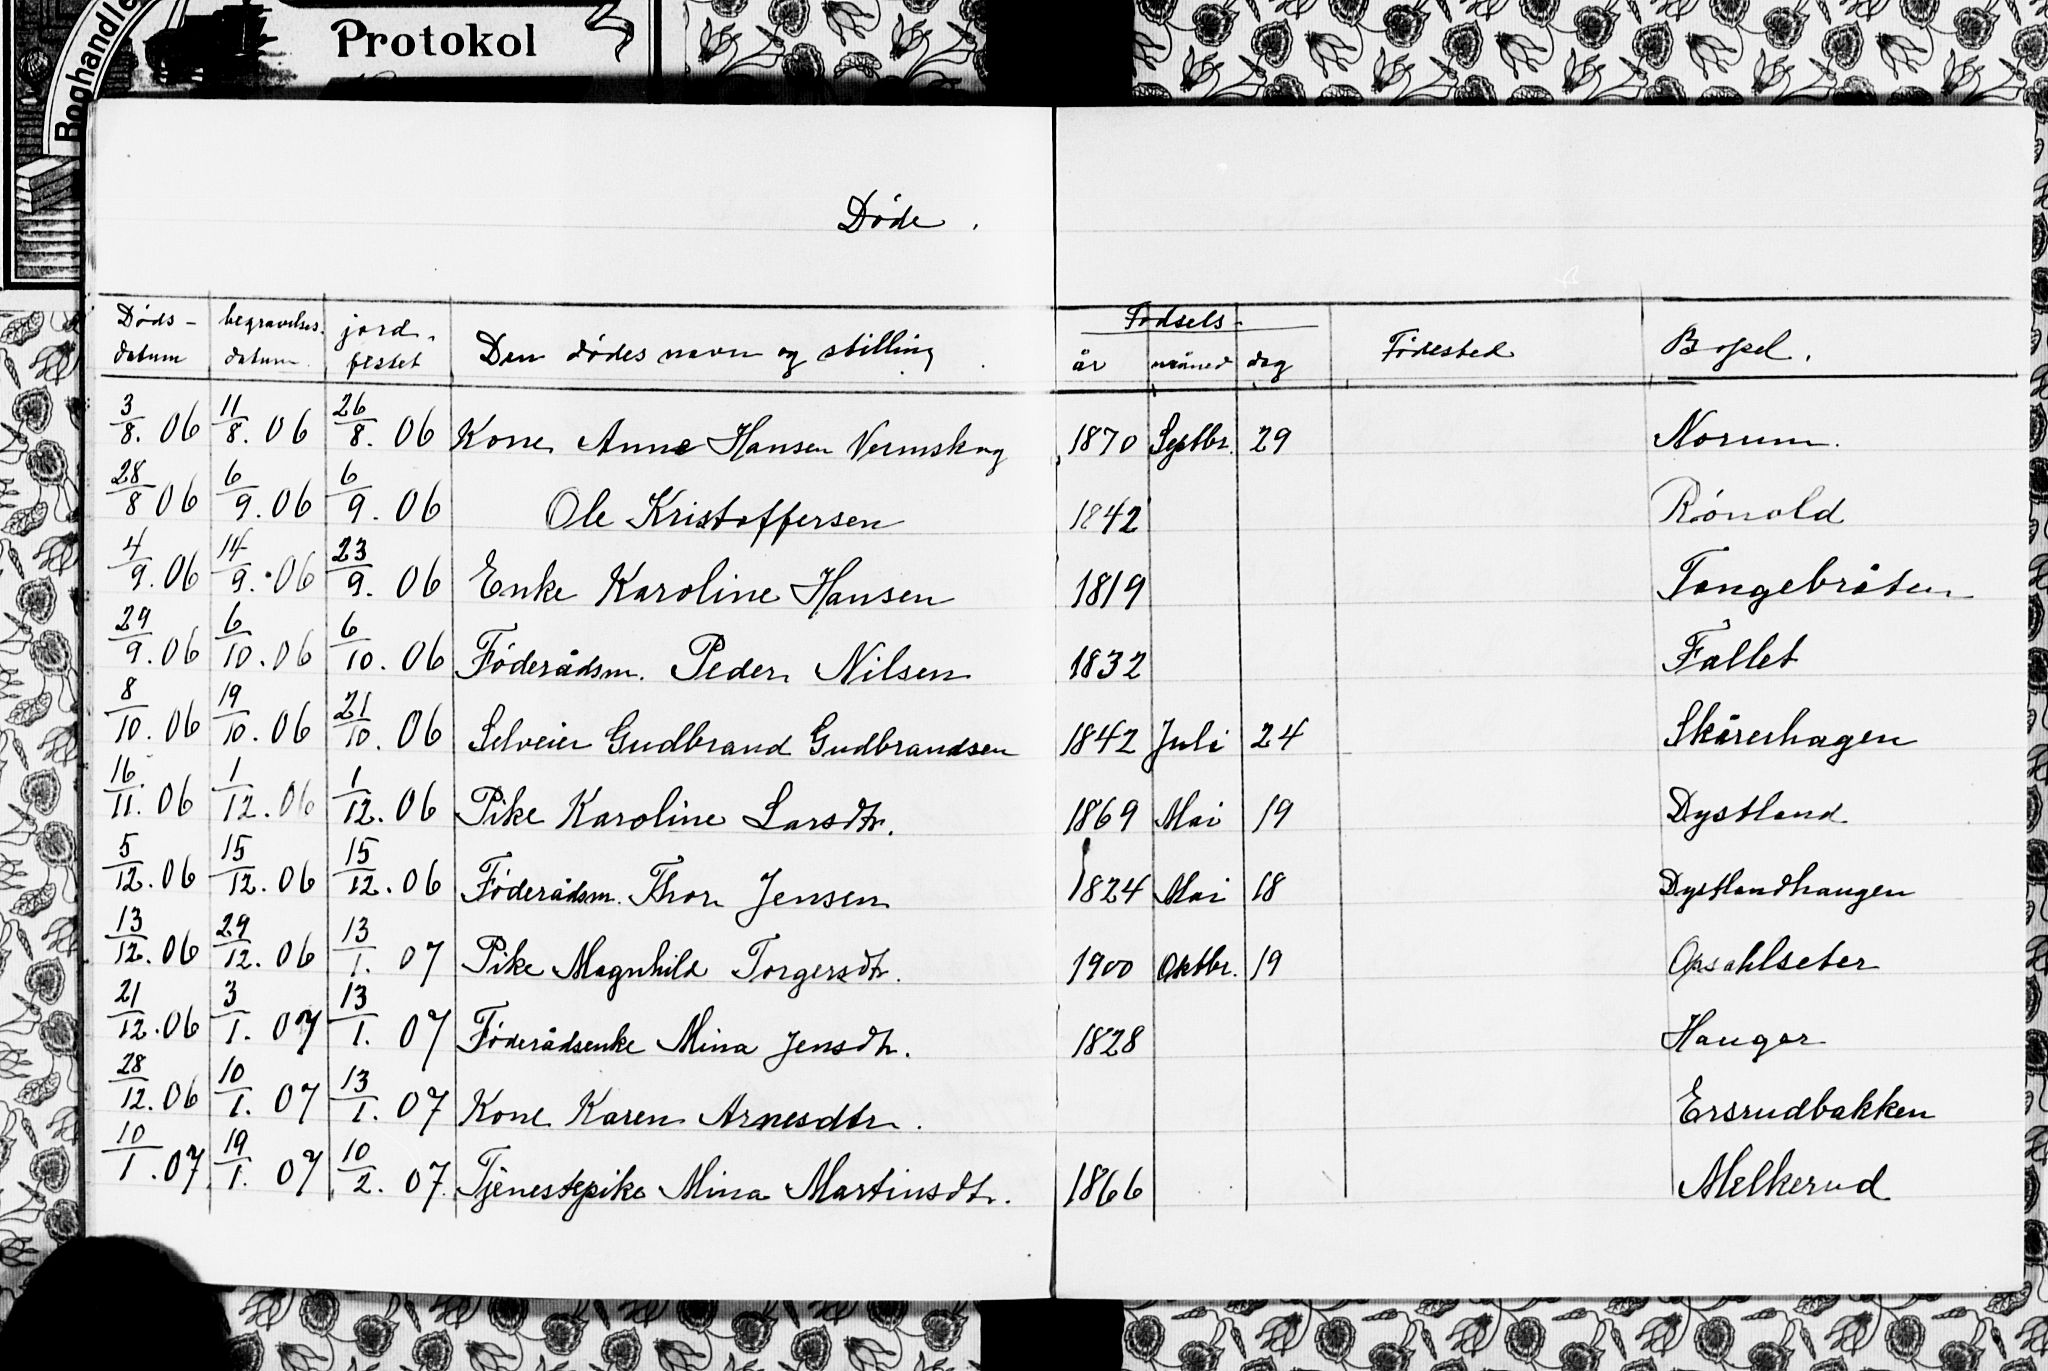 Boghandle
Protokol
Døde.
Døds- begravelses- jord- Fødsels-
datum datum festet Den dødes navn og stilling år måned dag Fødested Bopel.
3/8. 06 11/8. 06 26/8. 06 Kone Anne Hansen Vermskog 1870 Septbr. 29 Norum.
28/8 06 6/9. 06 6/9. 06 Ole Kristoffersen 1842 Rónold
4/9. 06 14/9. 06 23/9. 06 Enke Karoline Hansen 1819 Tangebråten
29/9. 06 6/10. 06 6/10. 06 Föderådsm. Peder Nilsen 1832 Fallet
8/10. 06 19/10. 06 21/10. 06 Selveier Gudbrand Gudbrandsen 1842 Juli 24 Skårerhagen
16/11. 06 1/12. 06 1/12. 06 Pike Karoline Larsdtr. 1869 Mai 19 Dystland
5/12. 06 15/12. 06 15/12. 06 Föderådsm. Thor Jensen 1824 Mai 18 Dystlandhaugen
13/12. 06 29/12. 06 13/1. 07 Pike Magnhild Torgersdtr. 1900 Oktbr. 19 Opsahlseter
21/12. 06 3/1. 07 13/1. 07 Föderådsenke Mina Jensdtr. 1828 Hauger
28/12. 06 10/1. 07 13/1. 07 Kone Karen Arnesdtr. Ersrudbakken
10/1. 07 19/1. 07 10/2. 07. Tjenestepike Mina Martinsdtr. 1866 Melkerud